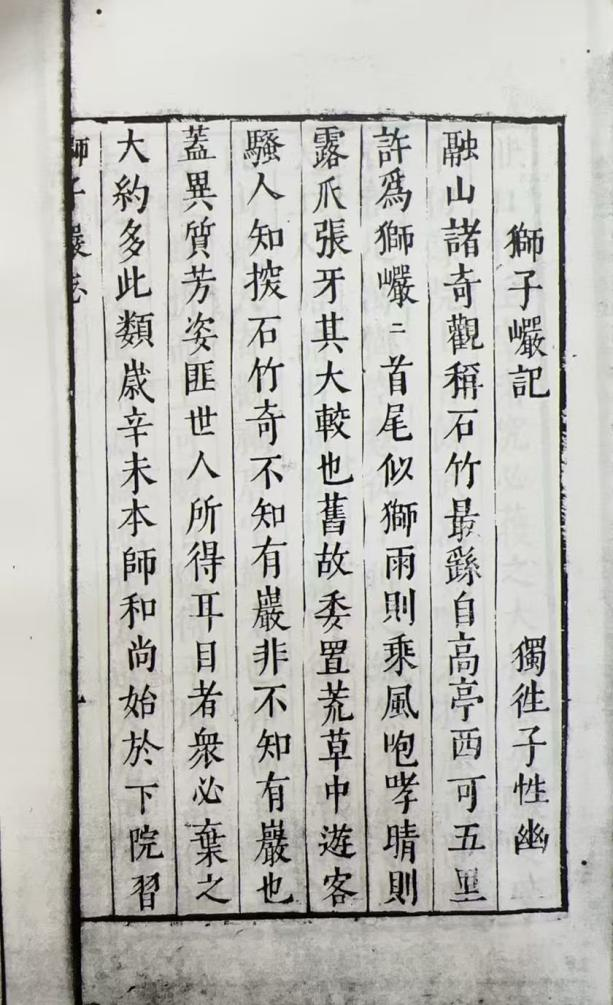 獅子巖記 獨徃子性幽
融山諸奇觀稱石竹最繇自高亭西可五里
許爲獅巖〻首尾似獅雨則乘風咆哮晴則
露爪張牙其大較也舊故委置荒草中遊客
騷人知探石竹奇不知有巖非不知有巖也
蓋異質芳姿匪世人所得耳目者衆必棄之
大約多此類歲辛未本師和尚始於下院習
獅子巖志